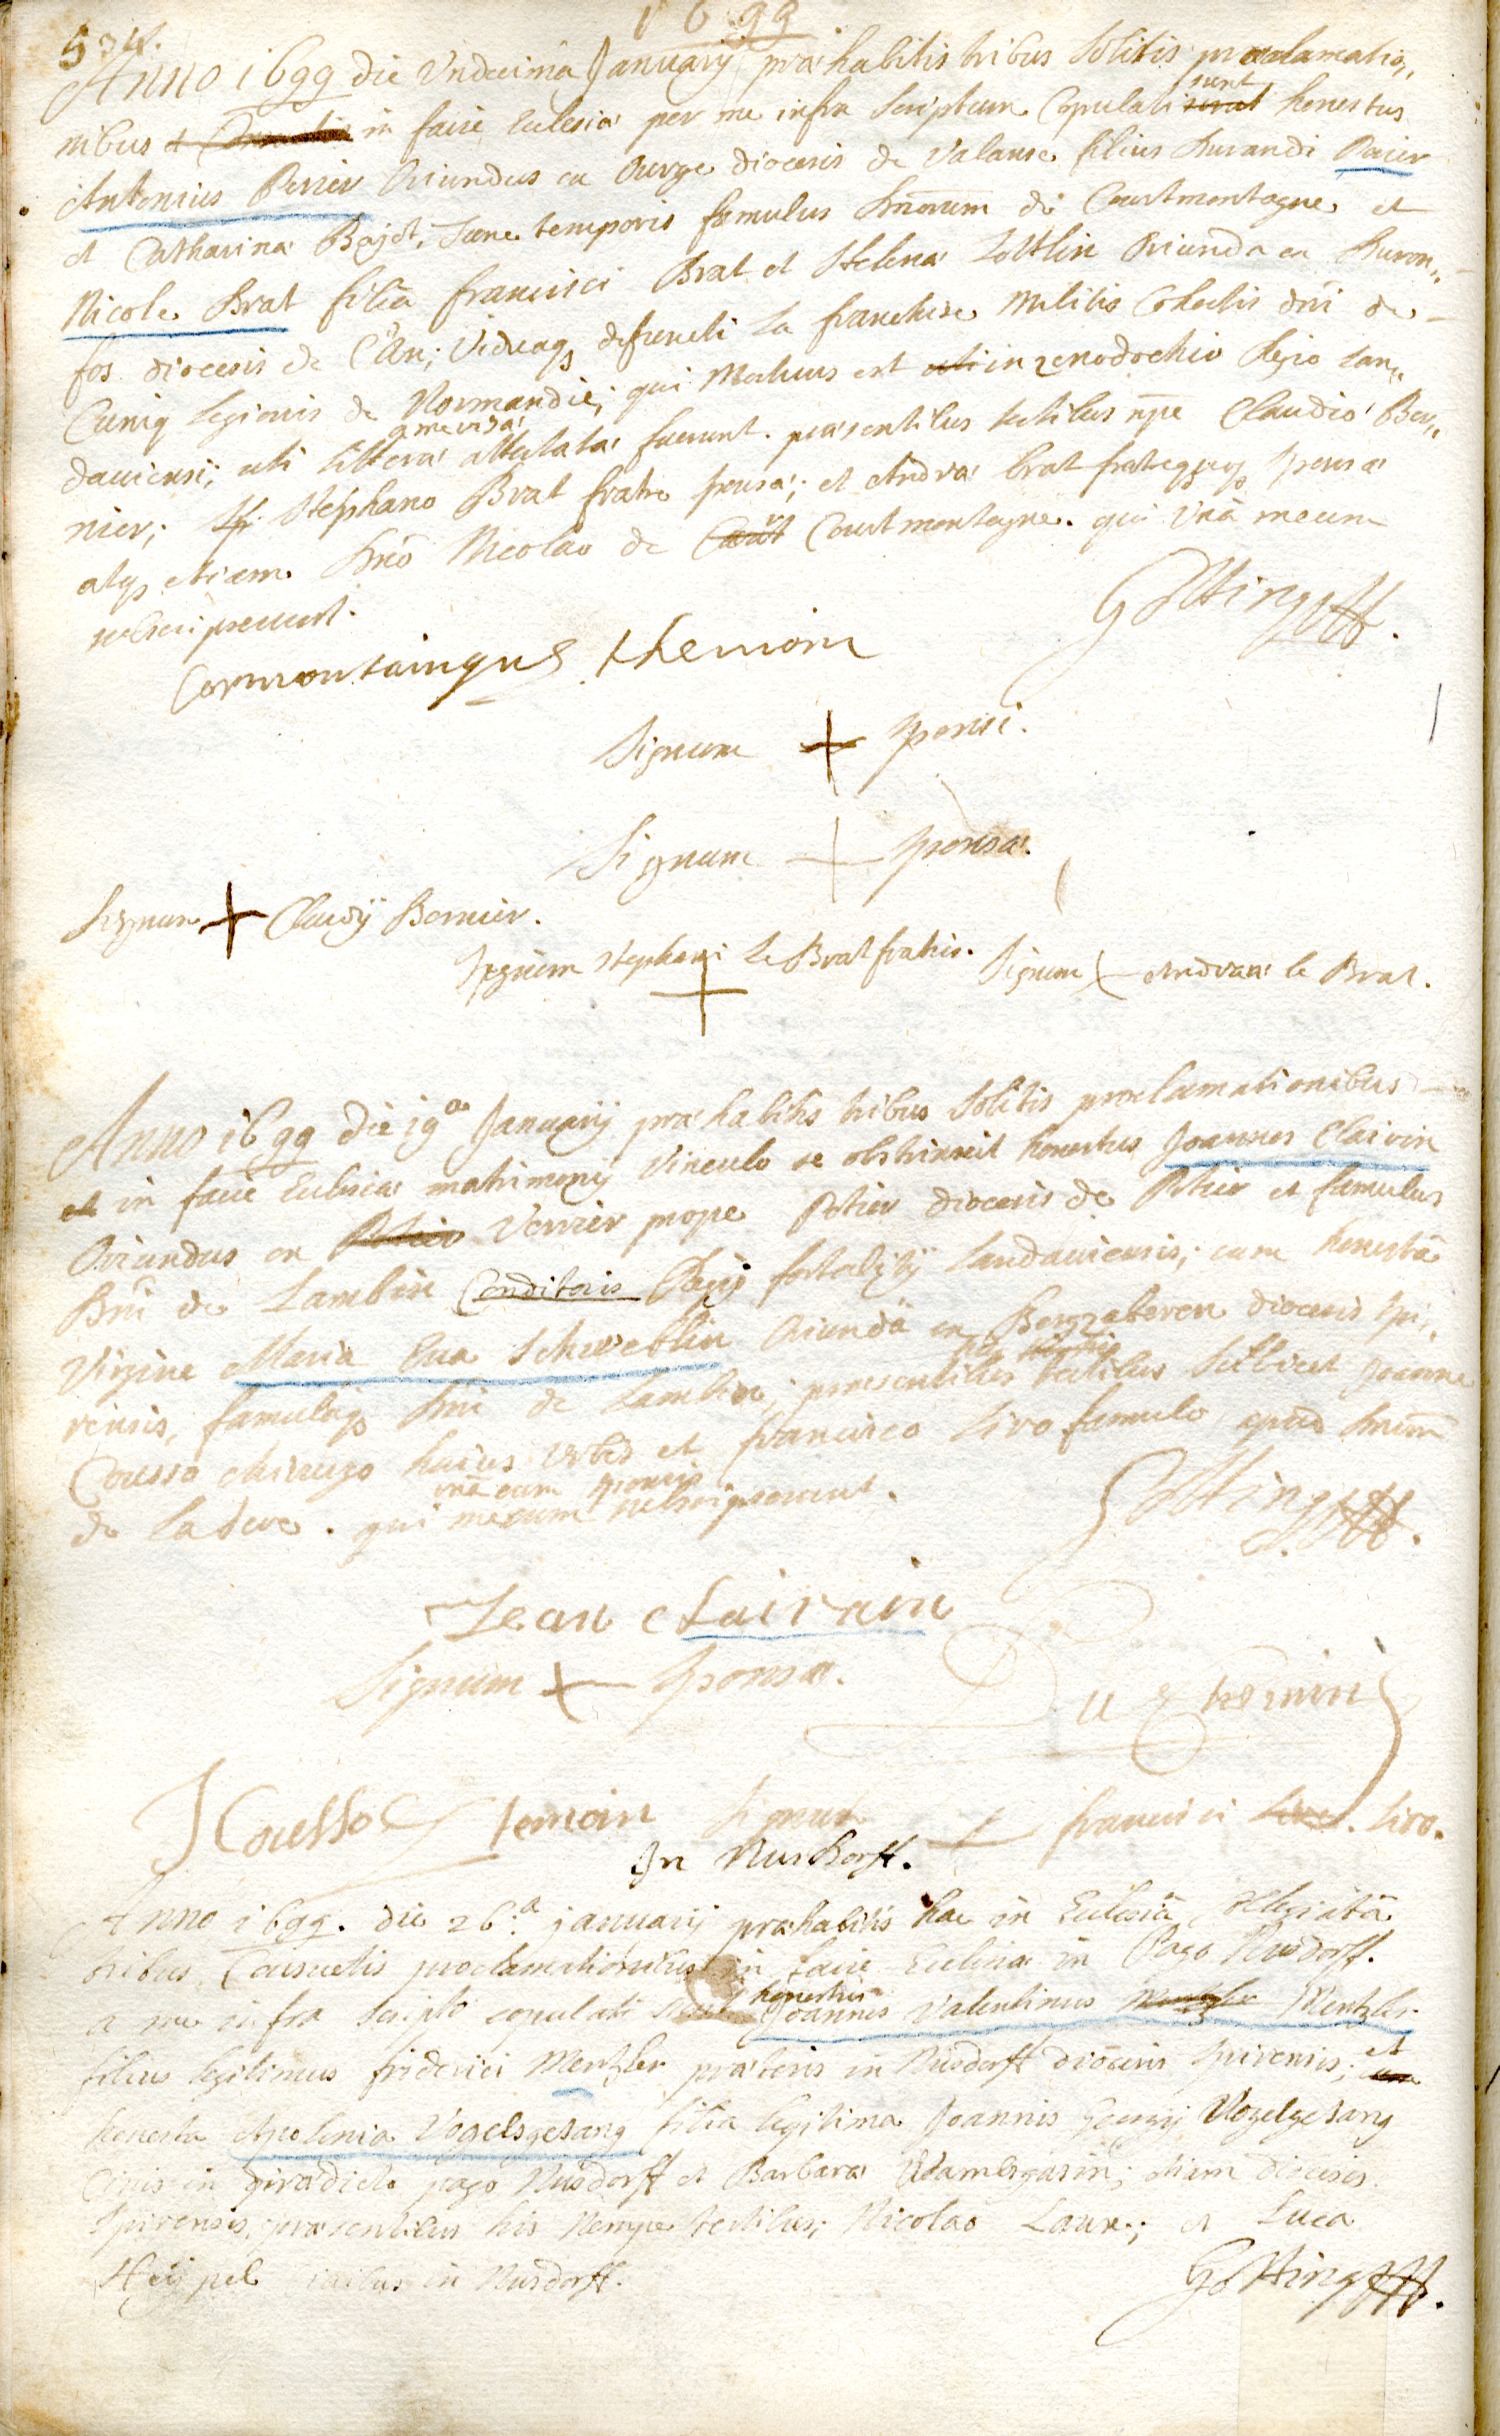 534.
1699
Anno 1699 die Undecima Januarij præhabitis tribus solitis proclamatio,,
nibus et in facie Ecclesiæ per me infra scriptum Copulati sunt honestus
Antonius Perier Oriundus ex Ourge diocesis de Valance filius Durandi Perier
et Catharinæ Bajot, Tunc temporis famulus Dni de Courtmontagne et
Nicole Brat filia francisci Brat et Helenæ Oriunda ex
fos diocesis de Can; Viduaqz defuncti La franchise Militis Cohortis dni de
Cuniq legionis de Normandie; qui Mortuus est in xenodochio Regio Lan,,
daviensi; uti litteræ a me visæ attestatæ fuerunt. præsentibus testibus npe Claudio Ber,,
nier; Stephano Brat fratre sponsæ; et Andræa brat fratre sponsæ
atqz etiam Dno Nicolao de Courtmontagne. qui Una mecum
subscripserunt.
Götting
Cormontaingne themoin
Signum + sponsi.
Signum + sponsæ.
Signum + Claudij Bernier.
Signum Stephani le Brat fratris. Signum + Andreæ le Brat.
Anno 1699 die 19a Januarij præhabitis tribus Solitis proclamationibus
et in facie Ecclesiæ matrimonij Vinculo se obstrinxit honestus Joannes Clairvin
Oriundus ex Verrier prope Potier diocesis de Potier et famulus
Dni de Lambin Conditoris Regij fortalitij Landaviensis; cum honesta
Virgine Maria Eva Schweblin Oriunda ex Bergzaberen diocesis Spi,,
rensis, famulaqz Dni de Lambin; præsentibus testibus scilicet Joanne
Cousso chirurgo huius Urbis et francisco Siro famulo apud Dnum
de Ladeve. qui mecum una cum sponsis subscripserunt.
Götting
Jean Clairvain
Signum + sponsæ.
Du Chemin
J Cousso temoin Signum + francisci Siro.
In Nusdorff.
Anno 1699. die 26.a januarij præhabitis hac in Ecclesia Collegiata
tribus Consuetis proclamationibus in facie Ecclesiæ in Pago Nusdorff.
a me infra scripto copulati sunt honestus Joannes Valentinus Mentzler
filius legitimus friderici Mentzler prætoris in Nusdorff diocesis spirensis; et
honesta Apolonia Vogelsgesang filia legitima Joannis Georgij Vogelgesang
Civis in prædicto pago Nusdorff et Barbaræ etiam diocesis
Spirensis, præsentibus his Nempe testibus; Nicolao Laux; et Luca
Heijpel civibus in Nusdorff.
Götting